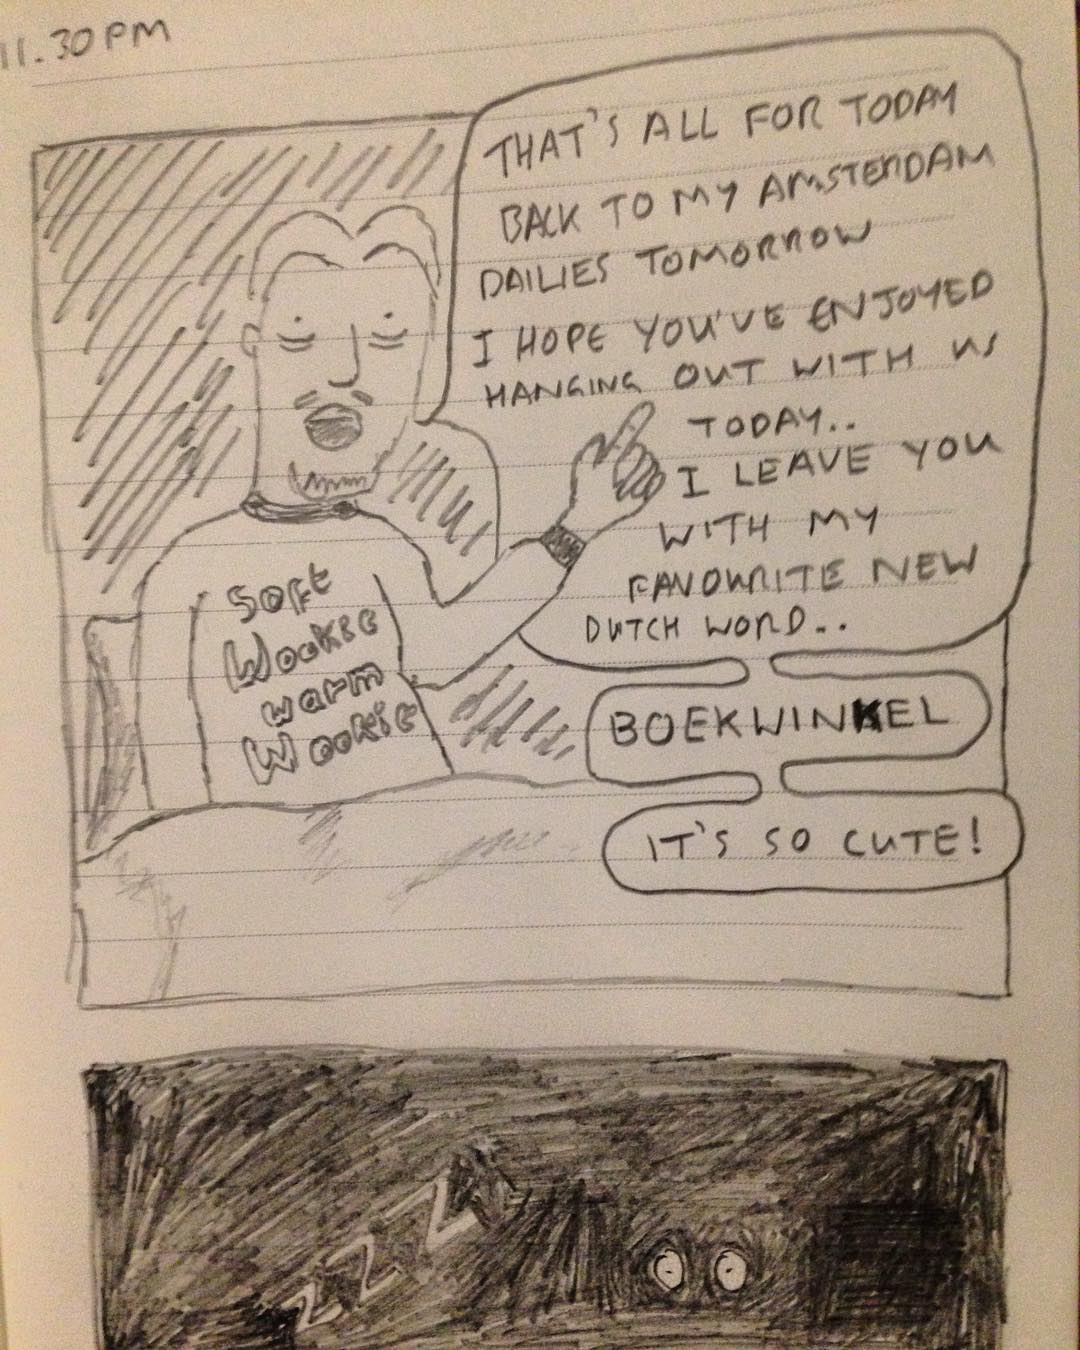 11.30PM
THAT'S ALL FOR TODAY
BACK TO MY AMSTERDAM
DAILIES TOMORROW
I HOPE YOU'VE ENJOYED
HANGING OUT WITH US
TODAY..
I LEAVE YOU
WITH MY
FAVOURITE NEW
DUTCH WORD..
BOEKWINKEL
IT'S SO CUTE!
Soft
Wookie
warm
Wookie
zzZZ